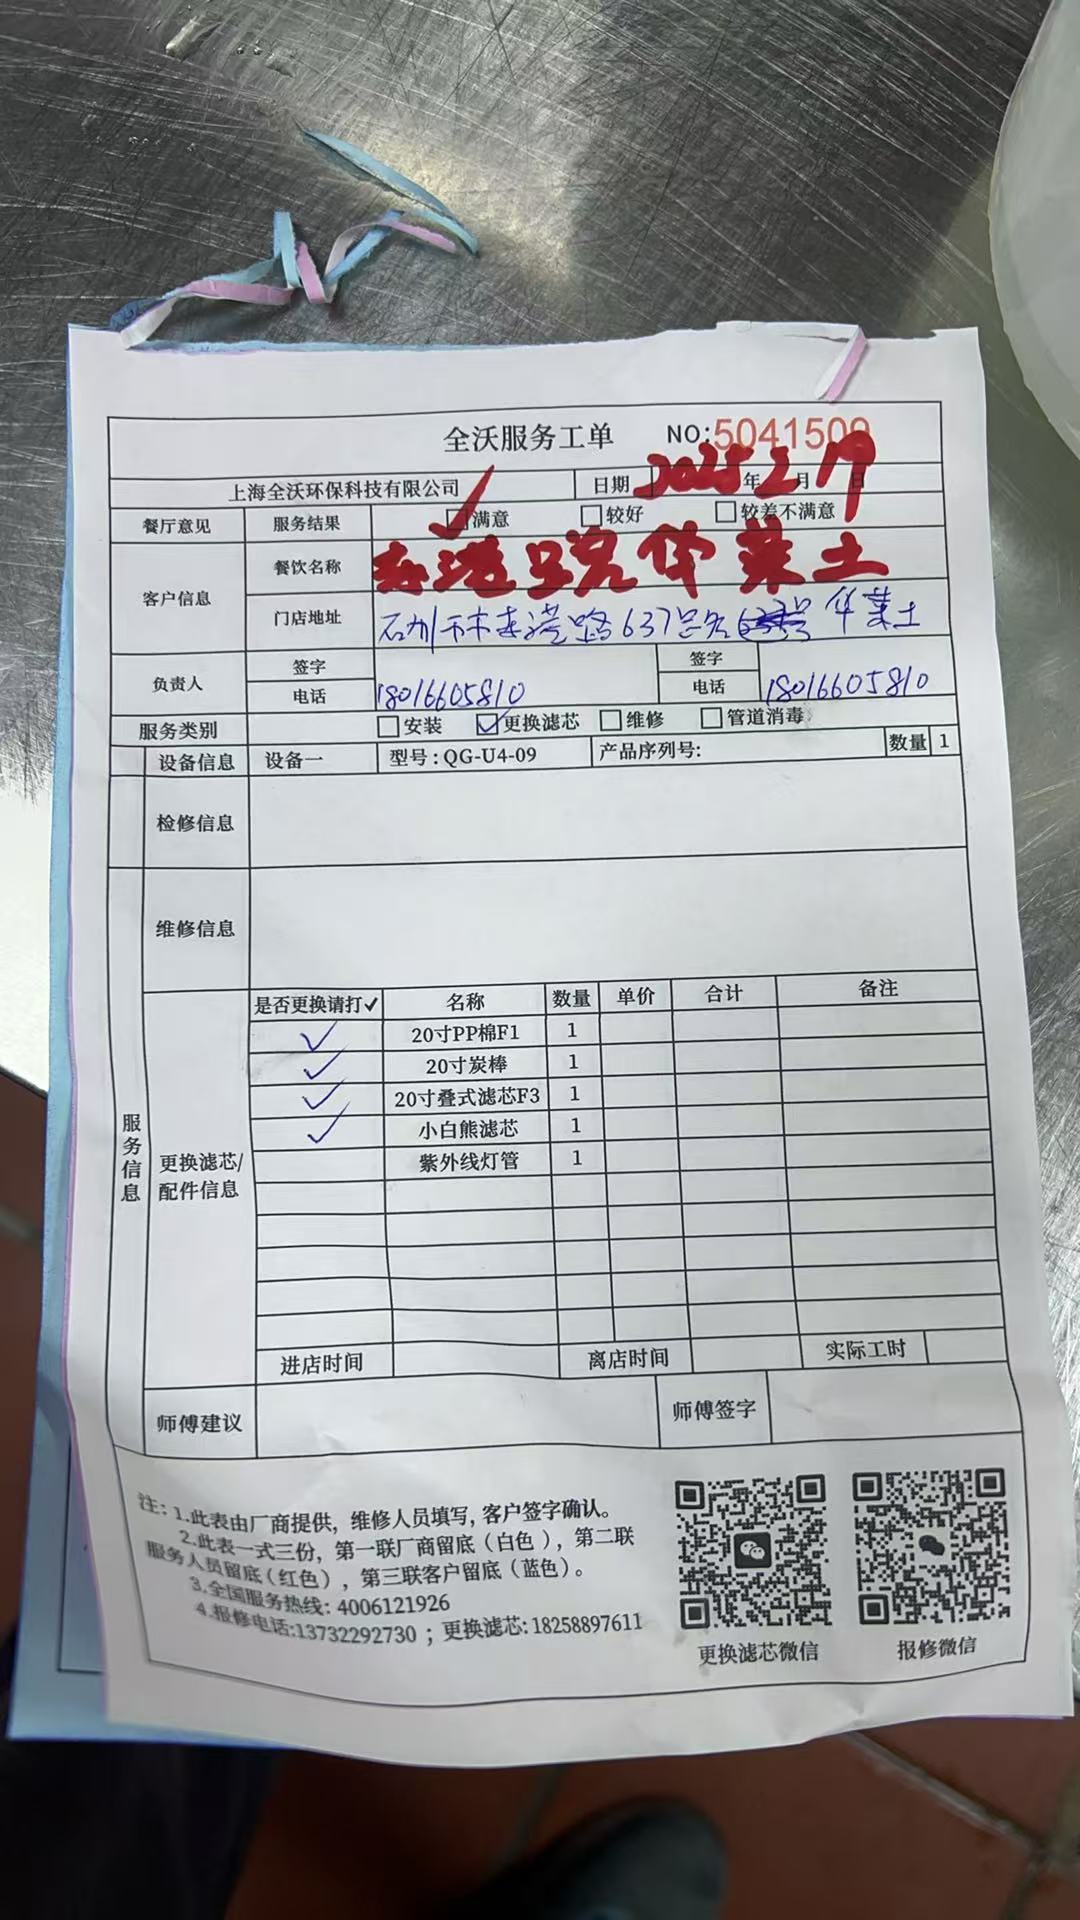 全沃服务工单 NO:5041509
上海全沃环保科技有限公司 日期 2025年2月19日
餐厅意见 服务结果 ✓满意 □较好 □较差不满意
客户信息 餐饮名称 港 华莱士
门店地址 港路637号 华莱士
负责人 签字 签字
电话 18016605810 电话 18016605810
服务类别 □安装 ☑更换滤芯 □维修 □管道消毒
设备信息 设备一 型号:QG-U4-09 产品序列号: 数量 1
检修信息
维修信息
服务信息
更换滤芯/
配件信息
是否更换请打✓ 名称 数量 单价 合计 备注
✓ 20寸PP棉F1 1
✓ 20寸炭棒 1
✓ 20寸叠式滤芯F3 1
✓ 小白熊滤芯 1
紫外线灯管 1
进店时间 离店时间 实际工时
师傅建议 师傅签字
注:1.此表由厂商提供,维修人员填写,客户签字确认。
2.此表一式三份,第一联厂商留底(白色),第二联
服务人员留底(红色),第三联客户留底(蓝色)。
3.全国服务热线:4006121926
4.报修电话:13732292730;更换滤芯:18258897611
更换滤芯微信 报修微信